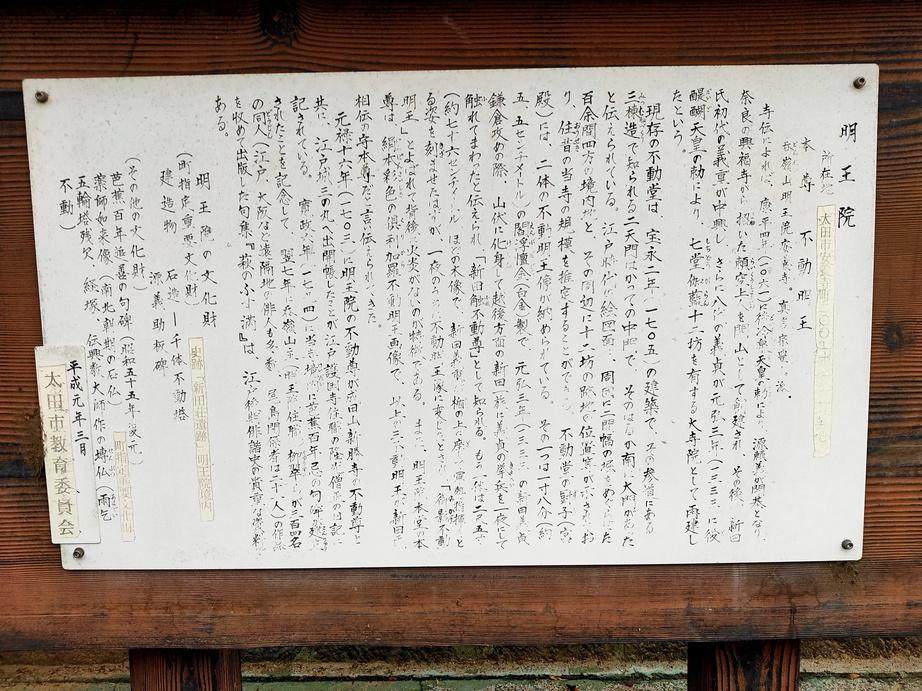 明王院
所在地 太田市安養寺町
本尊 不動明王
呑嶺山明王院安養寺 真言宗
寺伝によれば、康平四年(一〇六一)後冷泉天皇の勅により、源頼義が開基となり、
奈良の興福寺から招いた頼空上人を開山として創建され、その後、新田
氏初代の義重が中興し、さらに八代の義貞が元弘三年(一三三三)に後
醍醐天皇の勅により、七堂伽藍十二坊を有する大寺院として再建し
たという。
現存の不動堂は、宝永二年(一七〇五)の建築で、その参道にある
三棟造で知られる二天門はかつての中門で、そのほか南大門があった
と伝えられている。江戸時代の絵図面に、周囲に二間幅の堀をめぐらした
百余間四方の境内地と、その周辺に十二坊の跡地の位置等が示されてお
り、往昔の当寺の規模を推定することができる。不動堂の厨子(宮
殿)には、二体の不動明王像が納められている。その一つは一寸八分(約
五、五センチメートル)の閻浮檀金(白金)製で、元弘三年(一三三三)の新田義貞
鎌倉攻めの際、山伏に化身して越後方面の新田一族に義貞の挙兵を一夜にして
触れてまわったと伝えられ、「新田触不動尊」として知られる。もう一体は二尺五寸
(約七十六センチメートル)ほどの木像で、新田義
る姿を刻ませたはずが、一夜のうちに不動明王像に変じたとされ、「御影不動
明王」とよばれ、背後に火炎がないのが特徴である。また、明王院本堂の本
尊は、絹本彩色の倶利伽羅不動明王画像で、以上の三不動明王が新田氏
相伝の寺本尊だと言い伝えられてきた。
元禄十六年(一七〇三)に明王院の不動尊が成田山新勝寺の不動尊と
共に、江戸城三の丸へ出開帳したことが江戸護国寺住職の隆光僧正の日記に
記されている。寛政六年(一七九四)に当寺境内に芭蕉百年忌の句碑が建
されたことを記念して、翌七年に呑嶺山明王院住職
の同人(江戸、大阪など遠隔地の俳人も多数、尾島関係者は二十一人)の作品
を収めて出版した句集『萩のふ小満』は、江戸後期俳諧史の貴重な資料で
ある。
明王院の文化財
史跡 新田荘遺跡 明王院境内
(町指定重要文化財)
建造物 石造 ― 千体不動塔
源義助板碑
(その他の文化財)
芭蕉百年追善の句碑 (昭和五十五年復元)
薬師如来像 (南北朝期の石仏)
五輪塔残欠、経塚、伝興教大師作の塼仏(雨乞
不動)
平成元年三月
太田市教育委員会